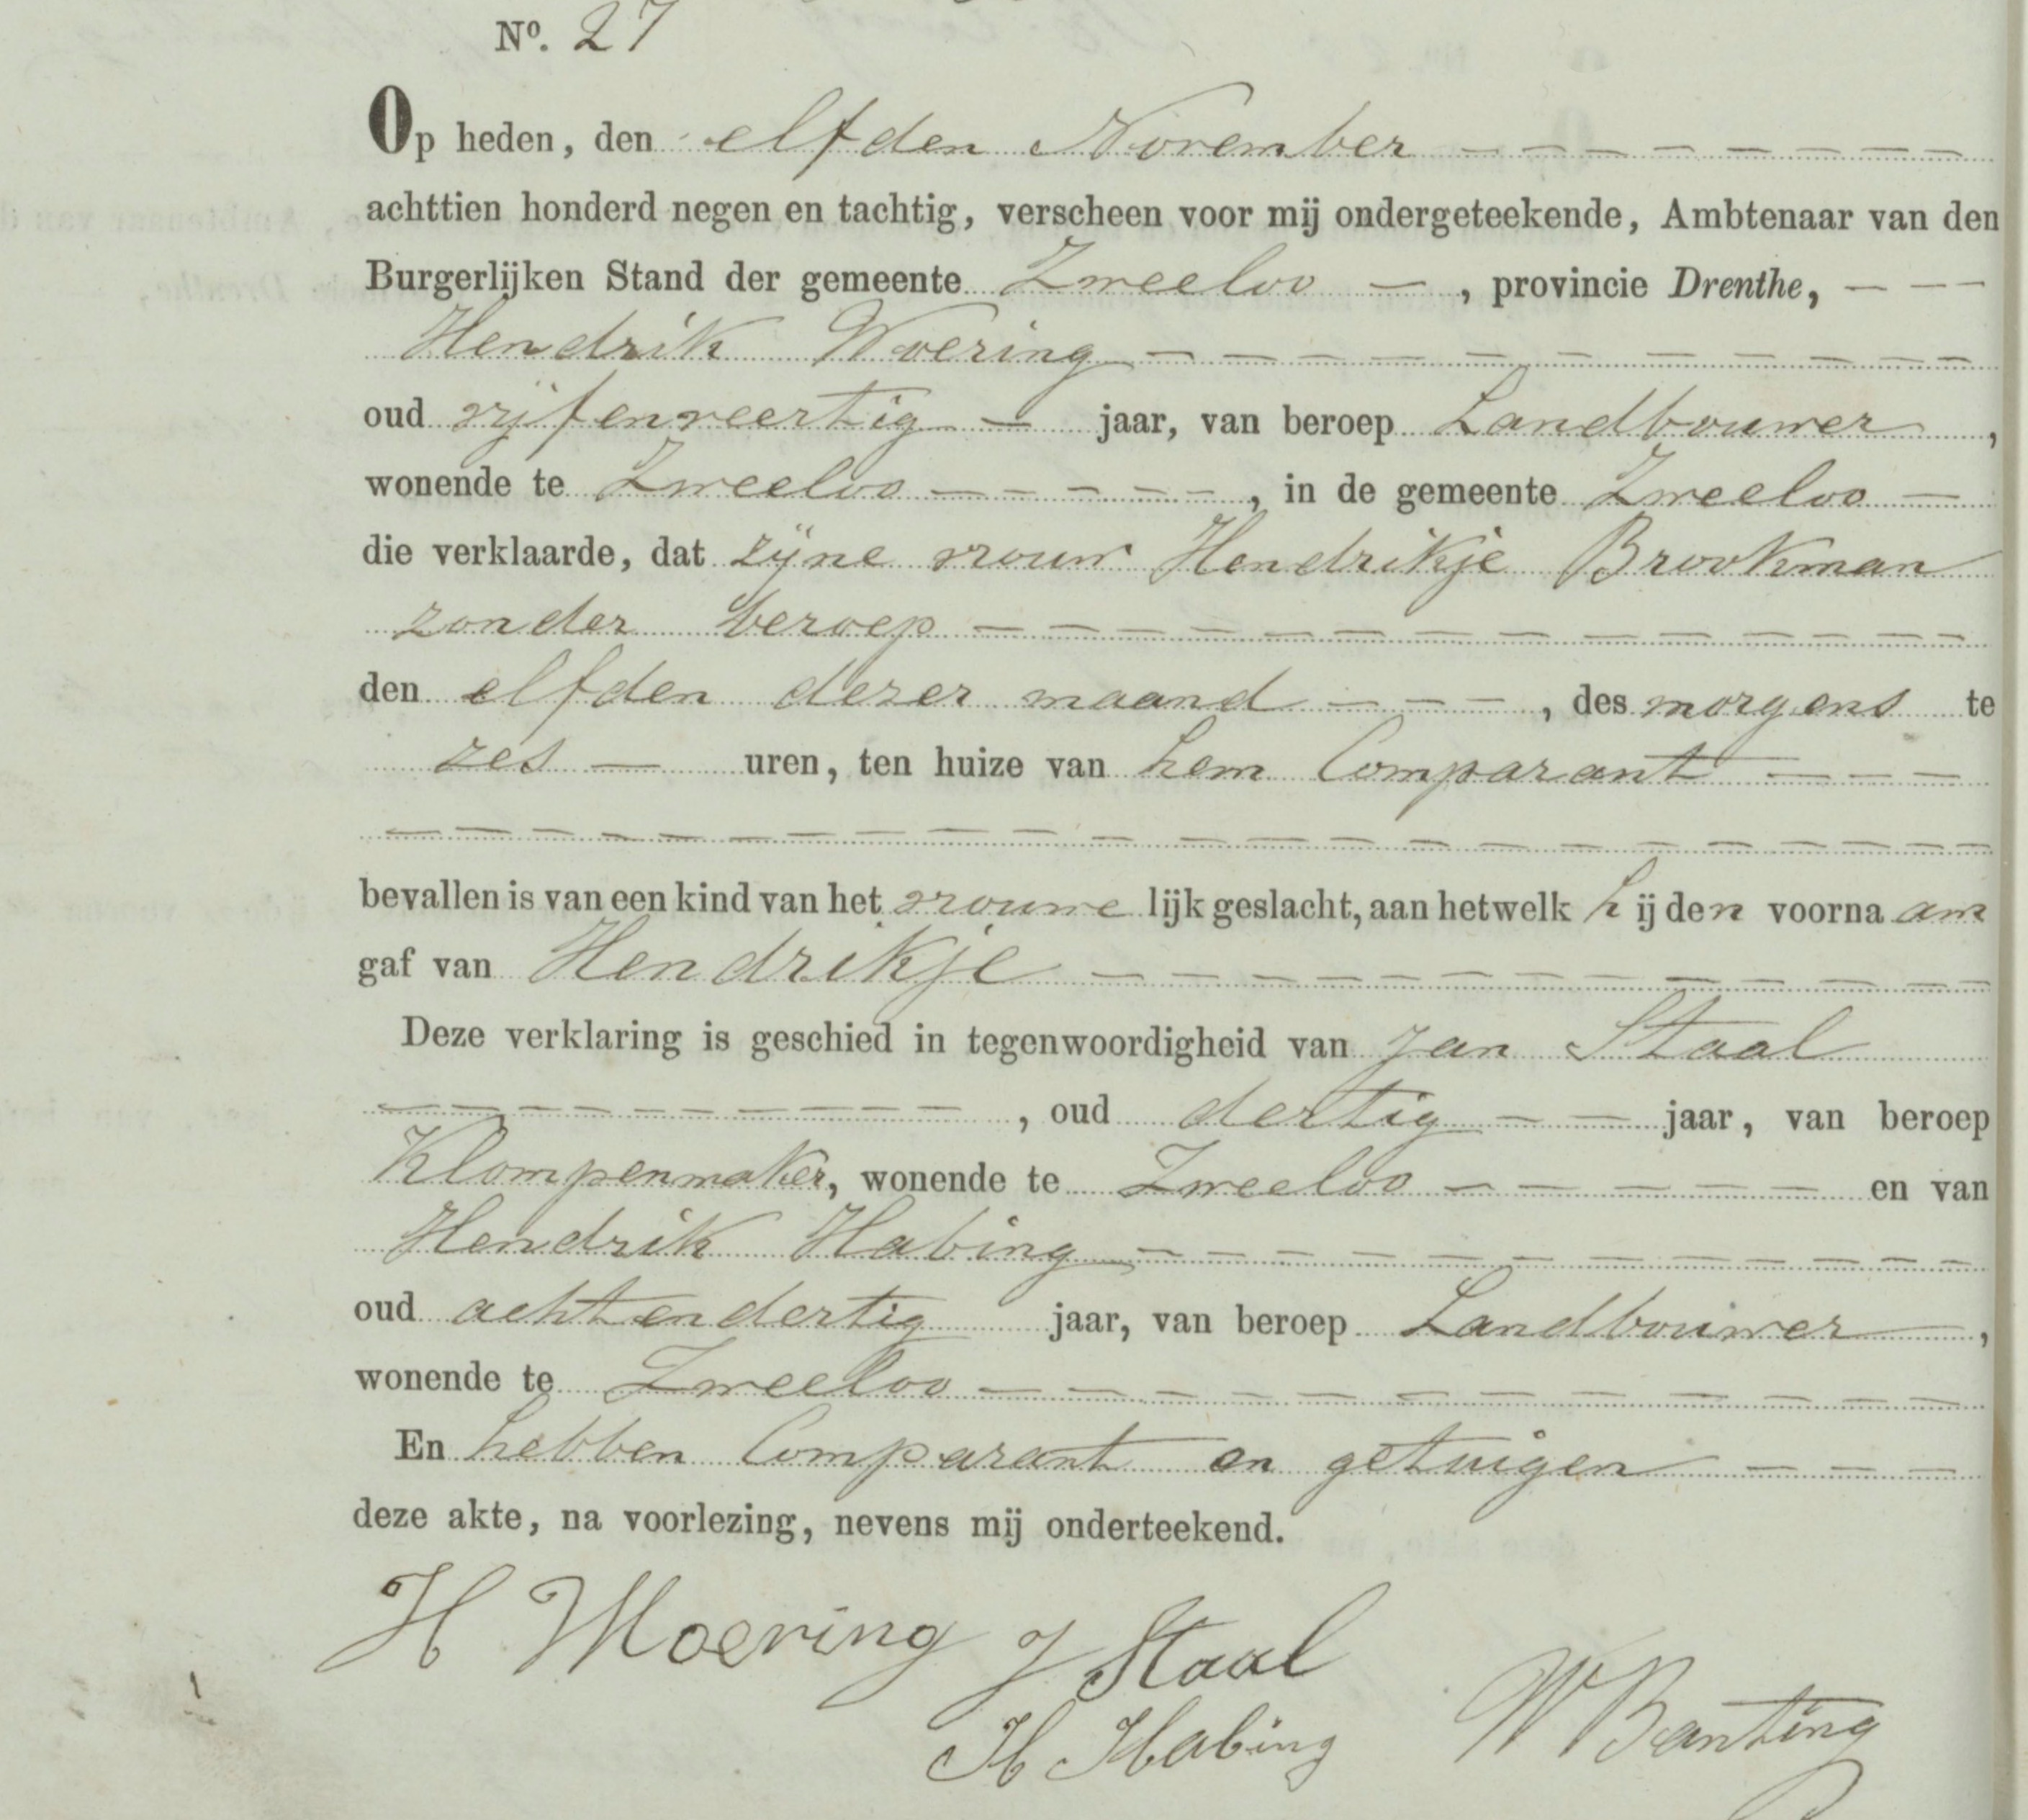 Nº. 27
Op heden, den elfden November
achttien honderd negen en tachtig, verscheen voor mij ondergeteekende, Ambtenaar van den
Burgerlijken Stand der gemeente Zweeloo, provincie Drenthe,
Hendrik Woering
oud vijfenveertig jaar, van beroep Landbouwer,
wonende te Zweeloo, in de gemeente Zweeloo
die verklaarde, dat zijne vrouw Hendrikje Brookman
zonder beroep
den elfden dezer maand, des morgens te
zes uren, ten huize van hem Comparant
bevallen is van een kind van het vrouwelijk geslacht, aan hetwelk hij den voornaam
gaf van Hendrikje
Deze verklaring is geschied in tegenwoordigheid van Jan Staal
, oud dertig jaar, van beroep
Klompenmaker, wonende te Zweeloo en van
Hendrik Habing
oud achtendertig jaar, van beroep Landbouwer,
wonende te Zweeloo
En hebben Comparant en getuigen
deze akte, na voorlezing, nevens mij onderteekend.
H Woering J Staal
H Habing W Banting